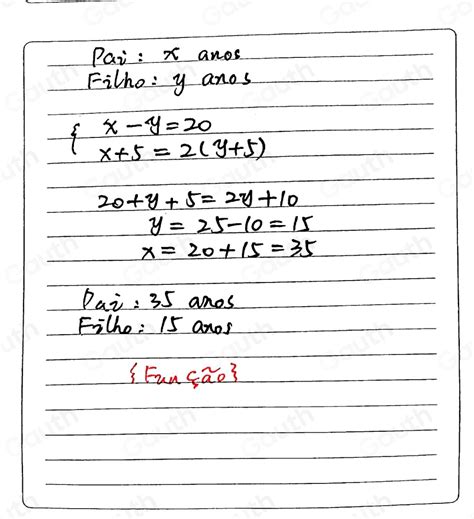 Pai : x anos
Filho : y anos
{ x - y = 20
x + 5 = 2(y + 5)
20 + y + 5 = 2y + 10
y = 25 - 10 = 15
x = 20 + 15 = 35
Pai : 35 anos
Filho : 15 anos
{Função}